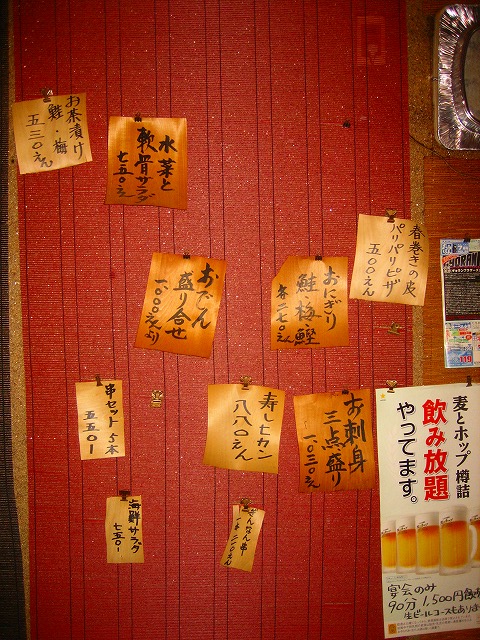 お茶漬け
鮭・梅
五三〇えん
水菜と
軟骨サラダ
七五〇えん
春巻きの皮
パリパリピザ
五〇〇えん
おでん
盛り合せ
一〇〇〇えんより
おにぎり
鮭 梅 鰹
各二七〇えん
串セット5本
五五〇-
寿しヒカン
八八〇えん
お刺身
三点盛り
一〇三〇えん
海鮮サラダ
七五〇-
ぎんなん串
麦とホップ 樽詰
飲み放題
やってます。
宴会のみ
90分 1,500円
生ビールコースもあります